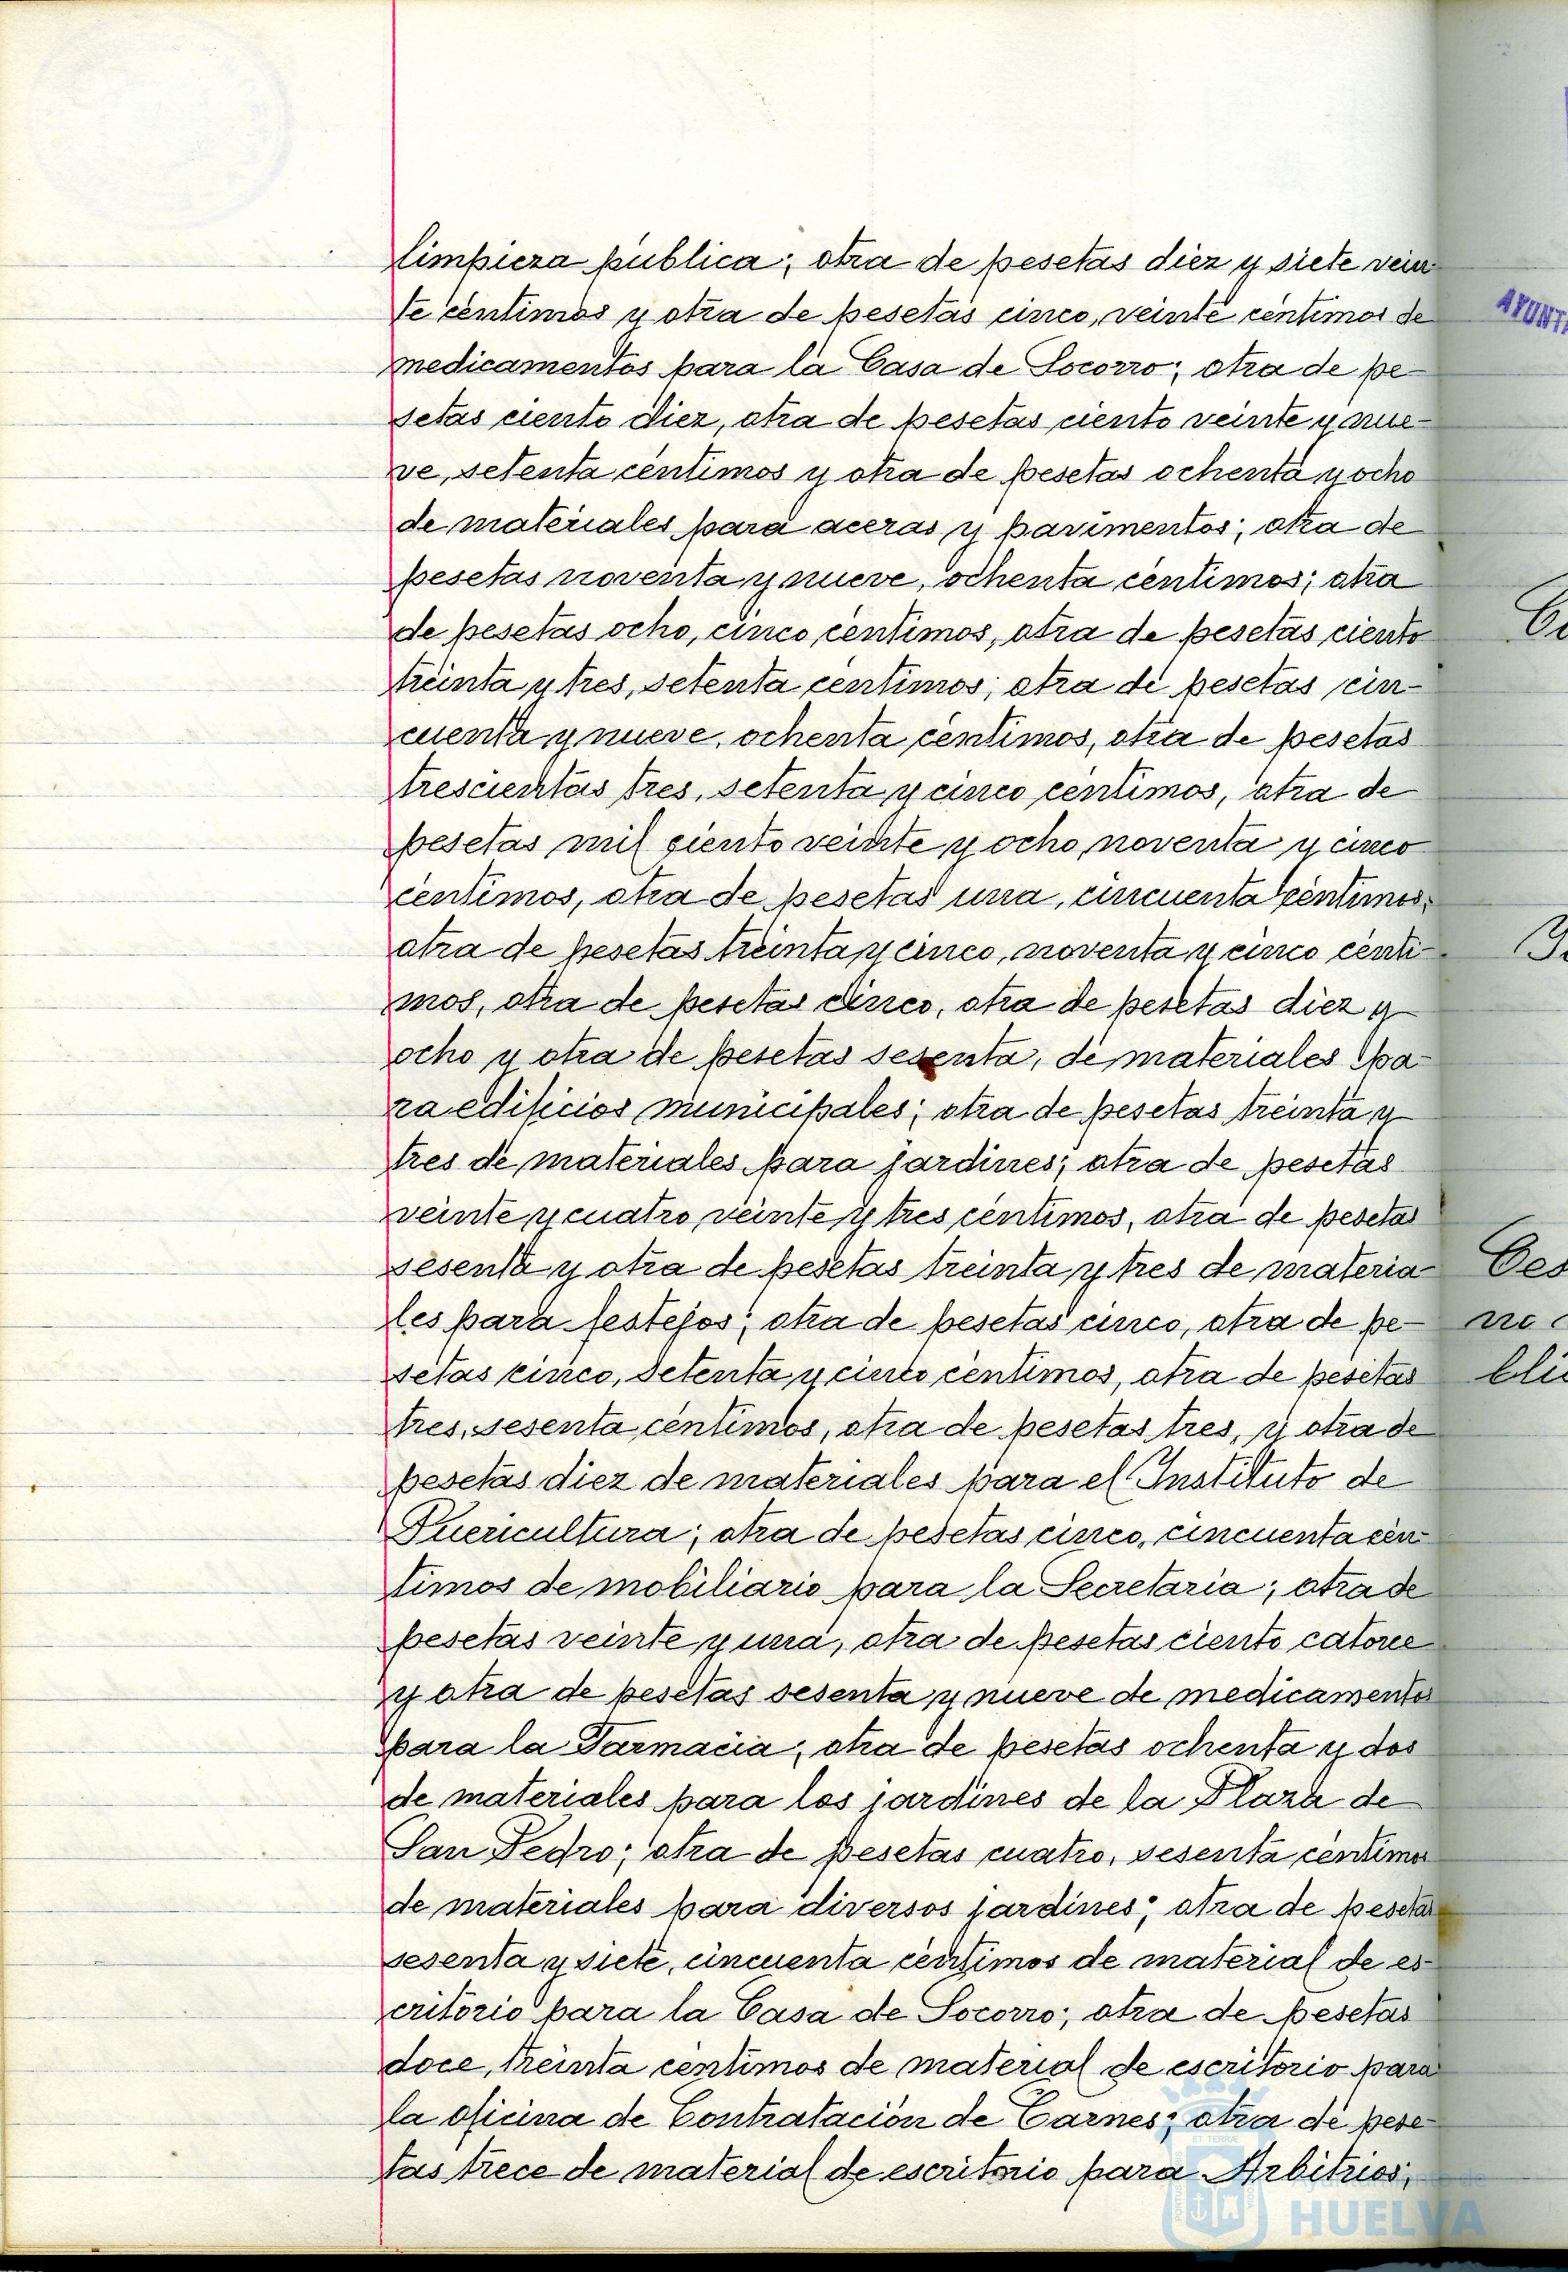 limpieza pública; otra de pesetas diez y siete vein
te céntimos y otra de pesetas cinco, veinte céntimos de
medicamentos para la Casa de Socorro; otra de pe-
setas ciento diez, otra de pesetas ciento veinte y nue-
ve, setenta céntimos y otra de pesetas ochenta y ocho
de materiales para aceras y pavimentos; otra de
pesetas noventa y nueve, ochenta céntimos; otra
de pesetas ocho, cinco céntimos, otra de pesetas ciento
treinta y tres, setenta céntimos; otra de pesetas cin-
cuenta y nueve, ochenta céntimos, otra de pesetas
trescientas tres, setenta y cinco céntimos, otra de
pesetas mil ciento veinte y ocho, noventa y cinco
céntimos, otra de pesetas una, cincuenta céntimos,
otra de pesetas treinta y cinco, noventa y cinco cénti-
mos, otra de pesetas cinco, otra de pesetas diez y
ocho y otra de pesetas sesenta, de materiales pa-
ra edificios municipales; otra de pesetas treinta y
tres de materiales para jardines; otra de pesetas
veinte y cuatro, veinte y tres céntimos, otra de pesetas
sesenta y otra de pesetas treinta y tres de materia-
les para festejos; otra de pesetas cinco, otra de pe-
setas cinco, setenta y cinco céntimos, otra de pesetas
tres, sesenta céntimos, otra de pesetas tres, y otra de
pesetas diez de materiales para el Instituto de
Puericultura; otra de pesetas cinco, cincuenta cén-
timos de mobiliario para la Secretaria; otra de
pesetas veinte y una, otra de pesetas ciento catorce
y otra de pesetas sesenta y nueve de medicamentos
para la Farmacia; otra de pesetas ochenta y dos
de materiales para los jardines de la Plaza de
San Pedro; otra de pesetas cuatro, sesenta céntimos
de materiales para diversos jardines; otra de pesetas
sesenta y siete, cincuenta céntimos de material de es-
critorio para la Casa de Socorro; otra de pesetas
doce, treinta céntimos de material de escritorio para
la oficina de Contratación de Carnes; otra de pese-
tas trece de material de escritorio para Arbitrios;
Ayuntamiento de
HUELVA